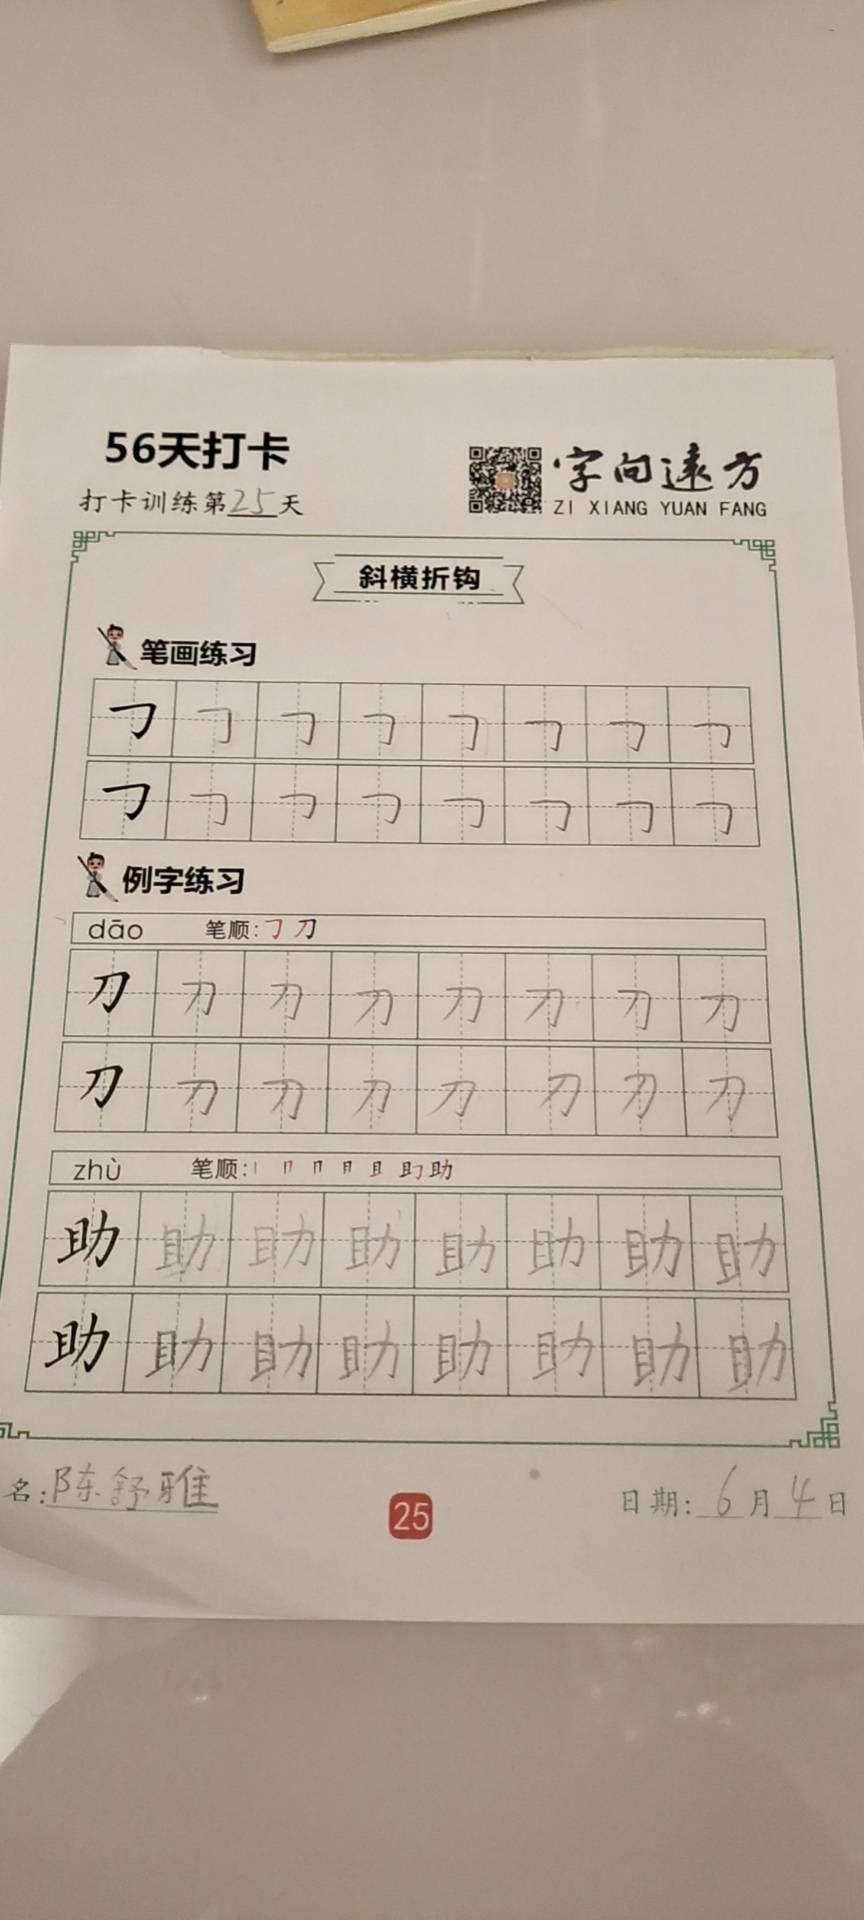 56天打卡
字向远方
打卡训练第25天
ZI XIANG YUAN FANG
斜横折钩
笔画练习
例字练习
dāo 笔顺: 刀
刀 刀 刀 刀 刀 刀 刀 刀
刀 刀 刀 刀 刀 刀 刀 刀
zhù 笔顺: 助
助 助 助 助 助 助 助 助
助 助 助 助 助 助 助 助
名: 陈舒雅
25
日期: 6月4日